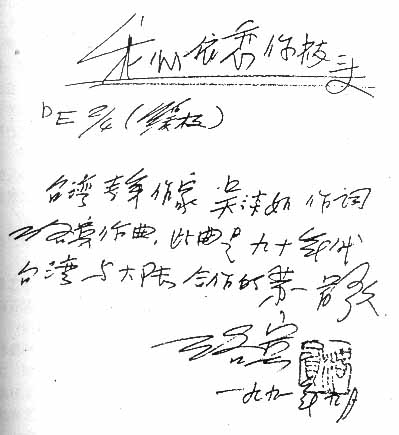 心依你枝头
bE 2/4 (慢板)
台湾青年作家 吴淡如 作词
洛宾作曲，此曲是九十年代
台湾与大陆合作的第一首歌
洛宾
一九九一年九月